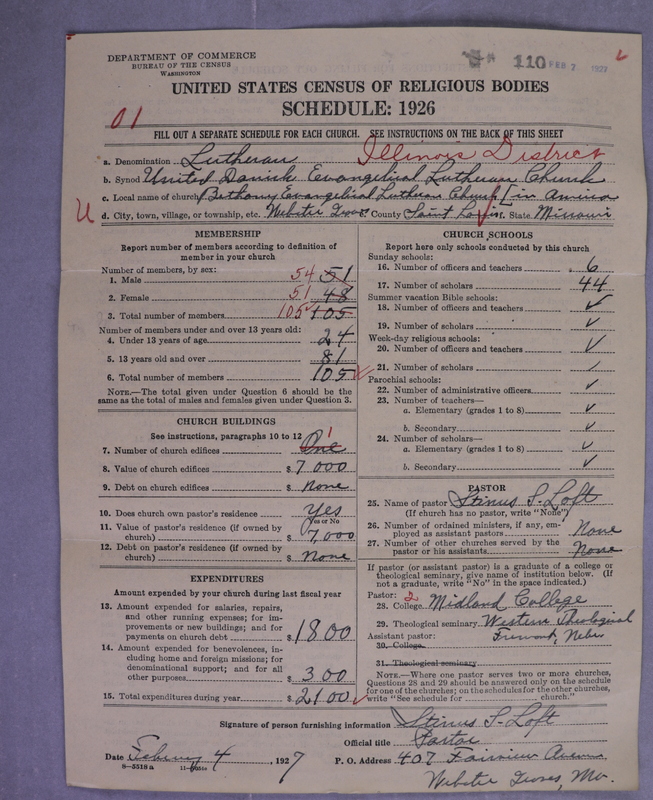 DEPARTMENT OF COMMERCE
BUREAU OF THE CENSUS
WASHINGTON
110 FEB 7 1927
UNITED STATES CENSUS OF RELIGIOUS BODIES
SCHEDULE: 1926
01
FILL OUT A SEPARATE SCHEDULE FOR EACH CHURCH. SEE INSTRUCTIONS ON THE BACK OF THIS SHEET
a. Denomination Lutheran Illinois District
b. Synod United Danish Evangelical Lutheran Church
c. Local name of church Bethany Evangelical Lutheran Church [in America
U d. City, town, village, or township, etc. Webster Groves County Saint Louis State Missouri
MEMBERSHIP
Report number of members according to definition of
member in your church
Number of members, by sex:
1. Male 54 51
2. Female 51 48
3. Total number of members 105 105
Number of members under and over 13 years old:
4. Under 13 years of age 24
5. 13 years old and over 81
6. Total number of members 105
NOTE.—The total given under Question 6 should be the
same as the total of males and females given under Question 3.
CHURCH BUILDINGS
See instructions, paragraphs 10 to 12
7. Number of church edifices One 1
8. Value of church edifices $ 7000
9. Debt on church edifices $ None
10. Does church own pastor's residence? Yes
Yes or No
11. Value of pastor's residence (if owned by
church) $ 7,000
12. Debt on pastor's residence (if owned by
church) $ None
EXPENDITURES
Amount expended by your church during last fiscal year
13. Amount expended for salaries, repairs,
and other running expenses; for im-
provements or new buildings; and for
payments on church debt $ 1800
14. Amount expended for benevolences, in-
cluding home and foreign missions; for
denominational support; and for all
other purposes $ 300
15. Total expenditures during year $ 2100
CHURCH SCHOOLS
Report here only schools conducted by this church
Sunday schools:
16. Number of officers and teachers 6
17. Number of scholars 44
Summer vacation Bible schools:
18. Number of officers and teachers ✓
19. Number of scholars ✓
Week-day religious schools:
20. Number of officers and teachers ✓
21. Number of scholars ✓
Parochial schools:
22. Number of administrative officers ✓
23. Number of teachers—
a. Elementary (grades 1 to 8) ✓
b. Secondary ✓
24. Number of scholars—
a. Elementary (grades 1 to 8) ✓
b. Secondary ✓
PASTOR
25. Name of pastor Stinus S. Loft
(If church has no pastor, write "None")
26. Number of ordained ministers, if any, em-
ployed as assistant pastors None
27. Number of other churches served by the
pastor or his assistants None
If pastor (or assistant pastor) is a graduate of a college or
theological seminary, give name of institution below. (If
not a graduate, write "No" in the space indicated.)
Pastor: 2
28. College Midland College
29. Theological seminary Western Theological
Assistant pastor: Fremont, Nebr
30. College
31. Theological seminary
NOTE.—Where one pastor serves two or more churches,
Questions 28 and 29 should be answered only on the schedule
for one of the churches; on the schedules for the other churches,
write "See schedule for church."
Signature of person furnishing information Stinus S. Loft
Official title Pastor
Date 4, 1927 P. O. Address 407 Fairview Avenue
8—5518a Webster Groves, Mo.